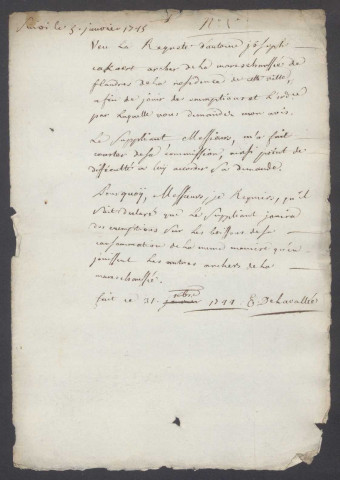 le 5. janvier 1745
Veu La Requete d'antoine joseph
archer de la mareschaussée de
flandres de la residence de cette ville,
afin de jouir des exemptions
par laquelle vous demandez mon avis.
Le Suppliant Messieurs, m'a fait
conster de sa commission, ainsi point de
difficulté a luy accorder sa demande.
Pourquoy, Messieurs, je Requiers, qu'il
soit declaré que le Suppliant jouira
des exemptions sur les boissons de sa
consommation de la meme maniere qu'en
jouissent les autres archers de la
mareschaussée.
fait ce 31. xbre 1744 DeLavallée